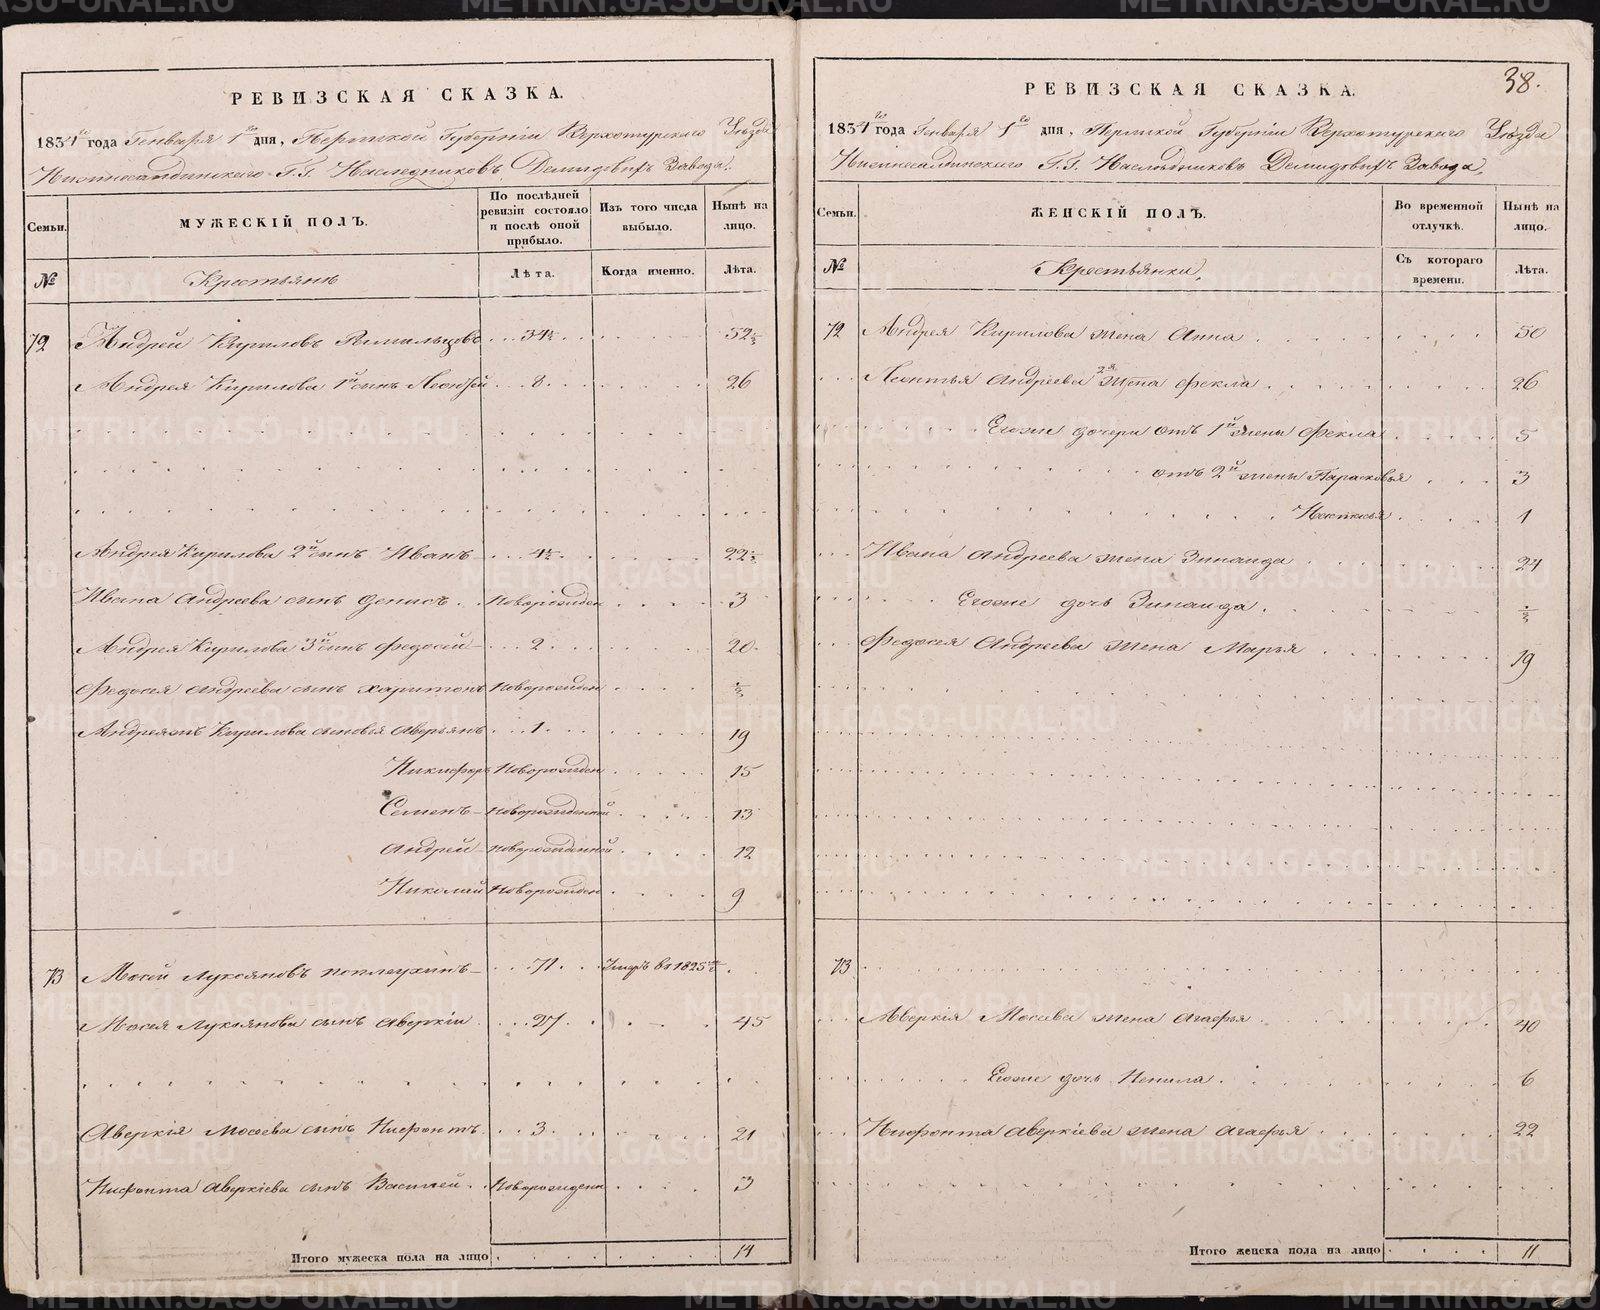 РЕВИЗСКАЯ СКАЗКА.
1834го года Генваря 1го дня, Пермской Губерніи Верхотурскаго Уѣзда
Нижнесалдинскаго Г.Г. Наслѣдниковъ Демидовыхъ Завода.
Семьи.
МУЖЕСКІЙ ПОЛЪ.
По послѣдней ревизіи состояло и послѣ оной прибыло.
Изъ того числа выбыло.
Нынѣ на лицо.
№
Крестьянъ
Лѣта.
Когда именно.
Лѣта.
72 Андрей Кириловъ 34½ 52½
Андрея Кирилова 1й сынъ Леонтей 8 26
Андрея Кирилова 2й сынъ Иванъ 4½ 22½
Ивана Андреева сынъ Денисъ Новорожден 3
Андрея Кирилова 3й сынъ Федосей 2 20
Федосея Андреева сынъ Харитонъ Новорожден ½
Андреяжъ Кирилова сыновья Аверьянъ 1 19
Никифоръ Новорожден 15
Семенъ Новорожденной 13
Андрей Новорожденной 12
Николай Новорожден 9
73 Мосей Лукояновъ Поплеухинъ 71 Умеръ въ 1825
Мосея Лукоянова сынъ Аверкіи 27 45
Аверкія Мосеева сынъ Нифонтъ 3 21
Нифонта Аверкіева сынъ Василей Новорожден 3
Итого мужеска пола на лицо 14
38.
РЕВИЗСКАЯ СКАЗКА.
1834го года Генваря 1го дня, Пермской Губерніи Верхотурскаго Уѣзда
Нижнесалдинскаго Г.Г. Наслѣдниковъ Демидовыхъ Завода,
Семьи.
ЖЕНСКІЙ ПОЛЪ.
Во временной отлучкѣ.
Нынѣ на лицо.
№
Крестьянки,
Съ котораго времени.
Лѣта.
72 Андрея Кирилова жена Анна 50
Леонтья Андреева 2я жена Фекла 26
Егоже дочери отъ 1й жены Фекла 5
отъ 2й жены Парасковья 3
Настасья 1
Ивана Андреева жена Зинаида 24
Егоже дочь Зинаида. ½
Федосея Андреева жена Марья 19
73
Аверкія Мосеева жена Агафья 40
Егоже дочь Ненила 6
Нифонта Аверкіева жена Агафья 22
Итого женска пола на лицо 11
METRIKI.GASO-URAL.RU